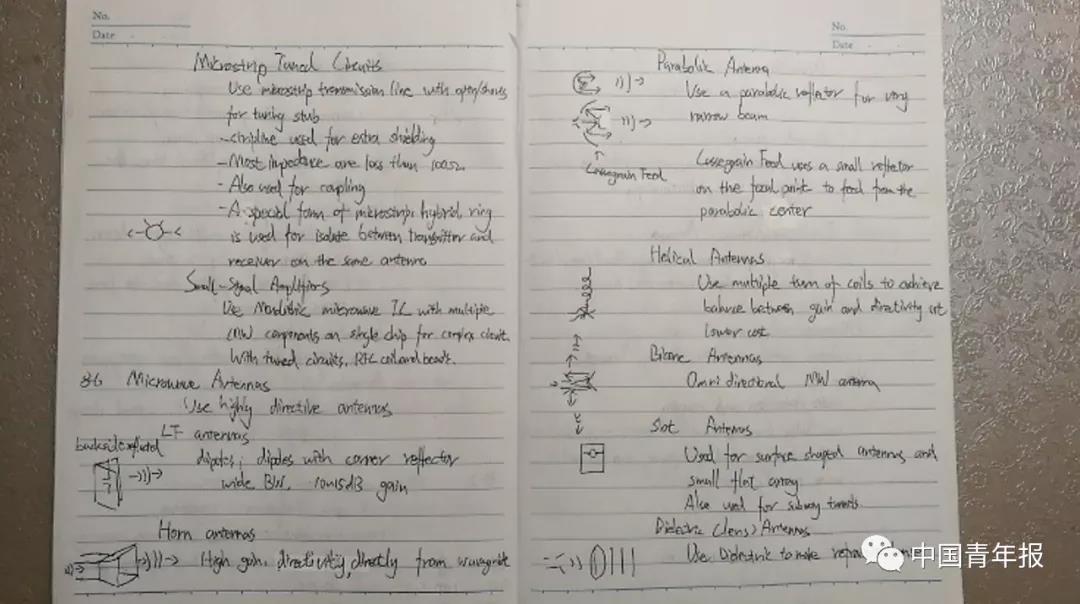 No.
Date
Microstrip Tuned Circuits
Use microstrip transmission line with open/shorts
for tuning stub
- stripline used for extra shielding
- Most impedance are less than 100Ω
- Also used for coupling
- A special form of microstrip, hybrid ring
is used for isolate between transmitter and
receiver on the same antenna
Small-Signal Amplifiers
Use Monolithic microwave IC with multiple
MW components on single chip for complex circuit.
With tuned circuits, RFC coil and beads.
36 Microwave Antennas
Use highly directive antennas
LF antennas
backside reflected
dipoles; dipoles with corner reflector
wide BW. 10~15dB gain
Horn antennas
High gain, directivity, directly from waveguide
No.
Date
Parabolic Antenna
Use a parabolic reflector for very
narrow beam
Cassegrain Feed
Cassegrain Feed uses a small reflector
on the focal point to feed from the
parabolic center
Helical Antennas
Use multiple turn of coils to achieve
balance between gain and directivity at
lower cost
Bicone Antennas
Omni directional MW antenna
Slot Antennas
Used for surface shaped antennas and
small flat array
Also used for subway tunnels
Dielectric (lens) Antennas
Use Dielectric to make
中国青年报